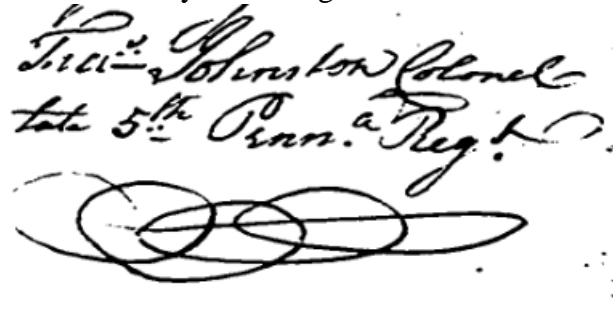 Fras Johnston Colonel
late 5th Penn.a Reg.t